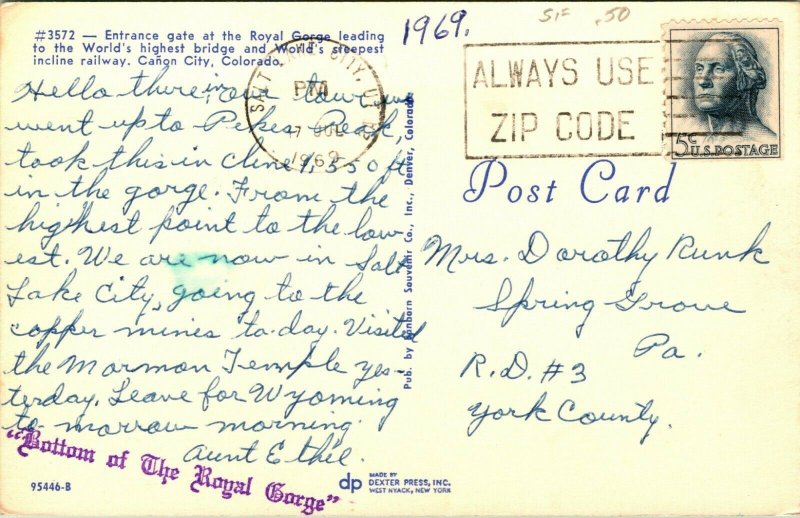 #3572 — Entrance gate at the Royal Gorge leading
to the World's highest bridge and World's steepest
incline railway. Cañon City, Colorado.
1969.
.50
SALT LAKE CITY, UT
PM
7 JUL
1969
ALWAYS USE
ZIP CODE
5¢ U.S. POSTAGE
Post Card
Hello there, in our tour we
went up to Pikes Peak,
took this incline 1,550 ft
in the gorge. From the
highest point to the low-
est. We are now in Salt
Lake City, going to the
copper mines to-day. Visited
the Mormon Temple yes-
terday. Leave for Wyoming
to-morrow morning.
Aunt Ethel.
Mrs. Dorothy Runk
Spring Grove
Pa.
R.D. #3
York County.
Pub. by Sanborn Souvenir Co., Inc., Denver, Colorado
"Bottom of The Royal Gorge"
95446-B
dp MADE BY
DEXTER PRESS, INC.
WEST NYACK, NEW YORK